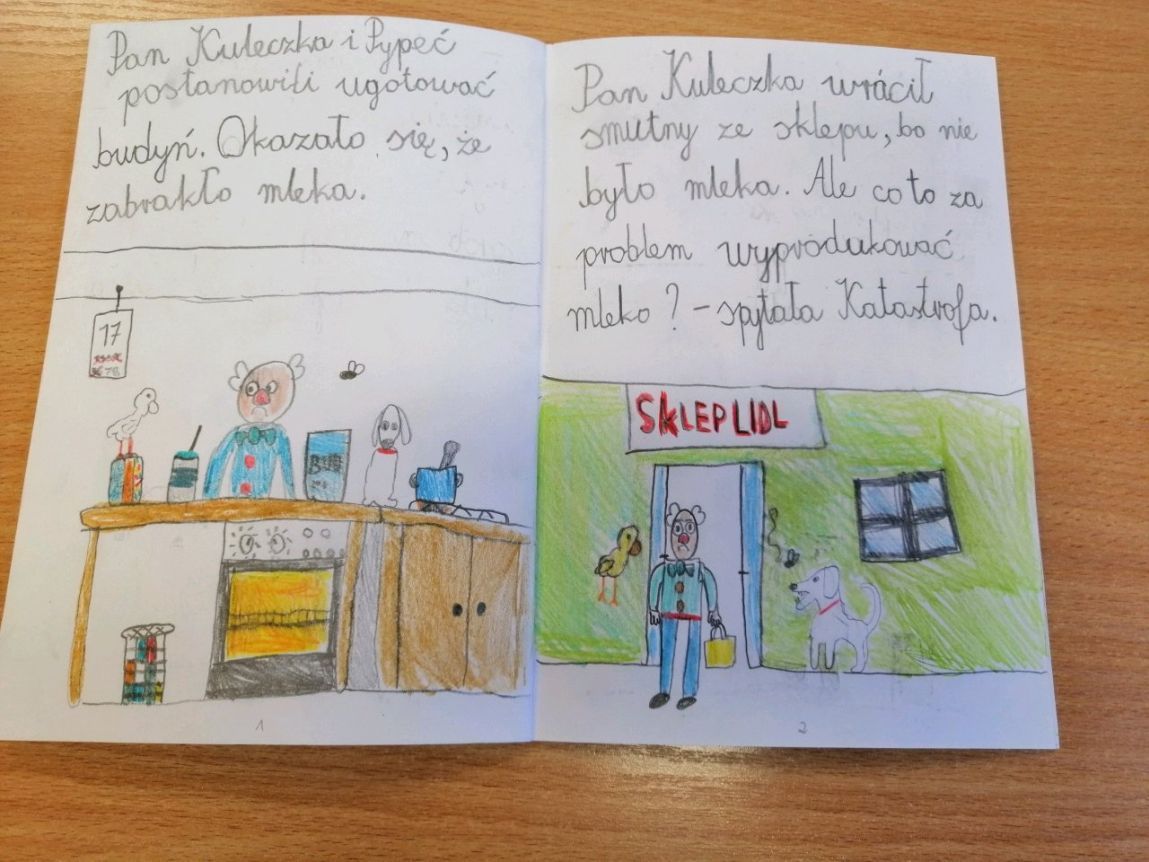 Pan Kuleczka i Pypeć
postanowili ugotować
budyń. Okazało się, że
zabrakło mleka.
17
BUD
1
Pan Kuleczka wrócił
smutny ze sklepu, bo nie
było mleka. Ale co to za
problem wyprodukować
mleko? - spytała Katastrofa.
SKLEP LIDL
2